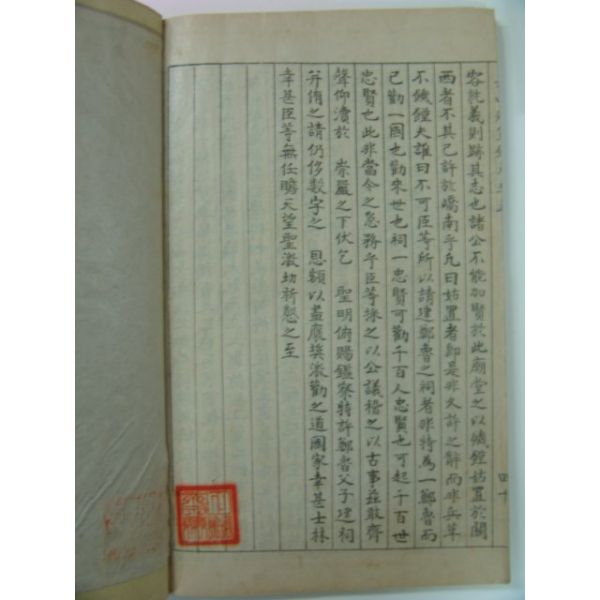 容就義則跡其志也諸公不能加賢於此廟堂之以緩鍾姑置於關
西者不其已許於嶠南乎允曰姑置者卽是非久許之辭而非兵革
不饑鍾夫誰曰不可臣等所以請建鄭魯之祠者非特為一鄭魯而
已勸一國也勸來世也祠一忠賢可勸千百人忠賢也可起千百世
忠賢也此非當今之急務乎臣等採之以公議稽之以古事玆敢齊
聲仰瀆於 崇嚴之下伏乞 聖明俯賜鑑察特許鄭耆父子建祠
幷侑之請仍侈數字之 恩額以盡褒奬激勸之道國家幸甚士林
幸甚臣等無任瞻天望聖激切祈懇之至
四十